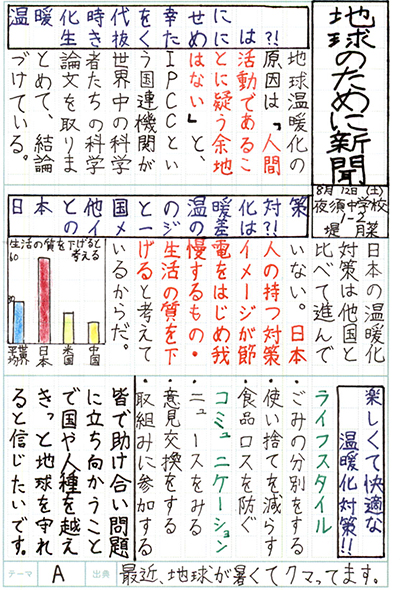 地球のために新聞
8月12日(土)
夜須中学校
1-2
堤 月菜
温暖化時代を幸せに
生き抜くためには?!
地球温暖化の
原因は「人間
活動であるこ
とに疑う余地
はない」と、
IPCCとい
う国連機関が
世界中の科学
者たちの科学
論文を取りま
とめて、結論
づけている。
日本と他国との温暖化対策
のイメージの差は?!
日本の温暖化
対策は他国と
比べて進んで
いない。日本
人の持つ対策
イメージが節
電をはじめ我
慢するもの・
生活の質を下
げると考えて
いるからだ。
生活の質を下げると
考える
60
30
世界平均
日本
米国
中国
楽しくて快適な
温暖化対策!!
ライフスタイル
・ごみの分別をする
・使い捨てを減らす
・食品ロスを防ぐ
コミュニケーション
・ニュースをみる
・意見交換をする
・取組みに参加する
皆で助け合い問題
に立ち向かうこと
で国や人種を越え
きっと地球を守れ
ると信じたいです。
テーマ A 出典 最近、地球が暑くてクマってます。